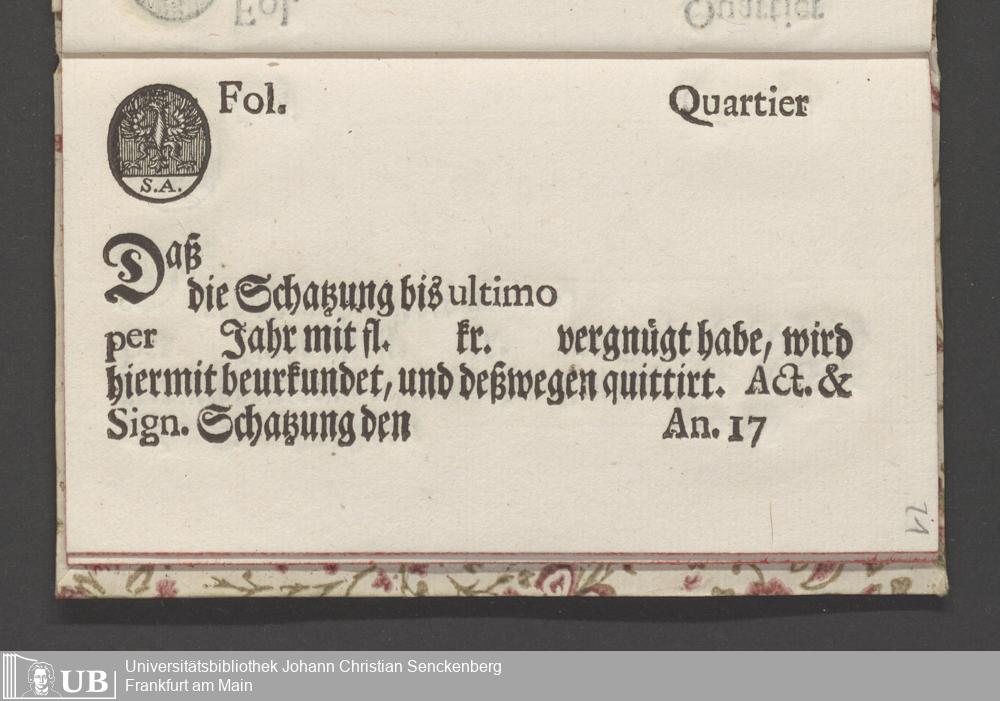 Fol. Quartier
S.A.
Daß
die Schatzung bis ultimo
per Jahr mit fl. kr. vergnügt habe, wird
hiermit beurkundet, und deßwegen quittirt. Act. &
Sign. Schatzung den An. 17
21
UB Universitätsbibliothek Johann Christian Senckenberg
Frankfurt am Main